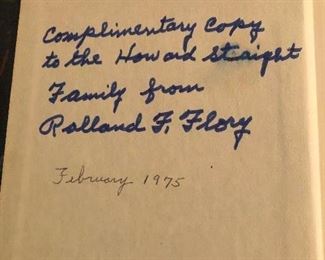 Complimentary Copy
to the Howard Straight
Family from
Rolland F. Flory
February 1975